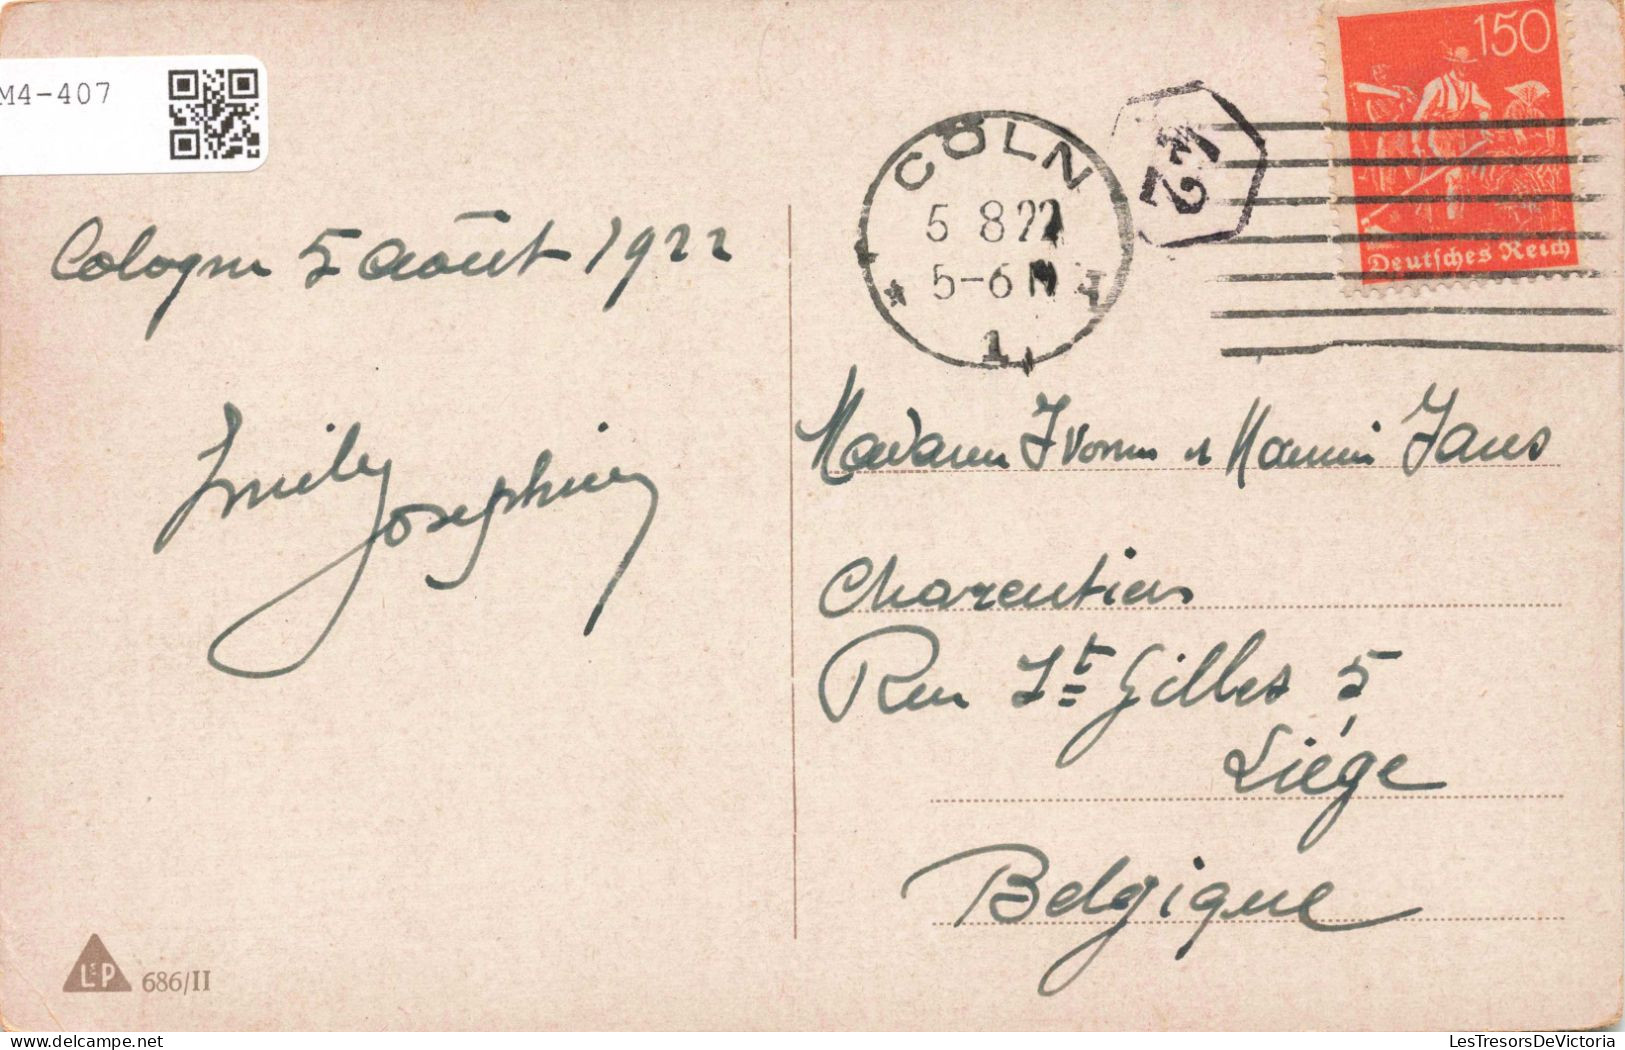 M4-407
150
CÖLN
5 8 22
5-6 N
1
Deutsches Reich
Cologne 5 août 1922
Emily
Josephine
Madame Yvonne et Jans
Charentier
Rue St Gilles 5
Liége
Belgique
L&P 686/II
LesTresorsDeVictoria